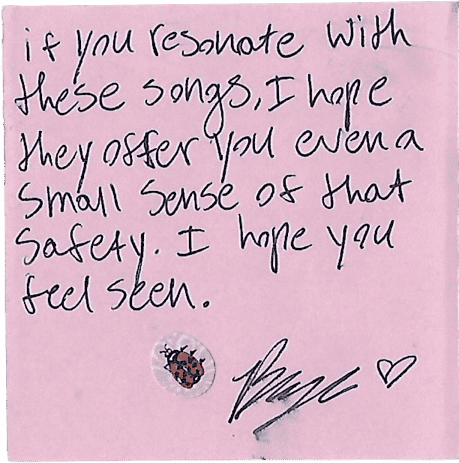 if you resonate with
these songs, I hope
they offer you even a
small sense of that
safety. I hope you
feel seen.